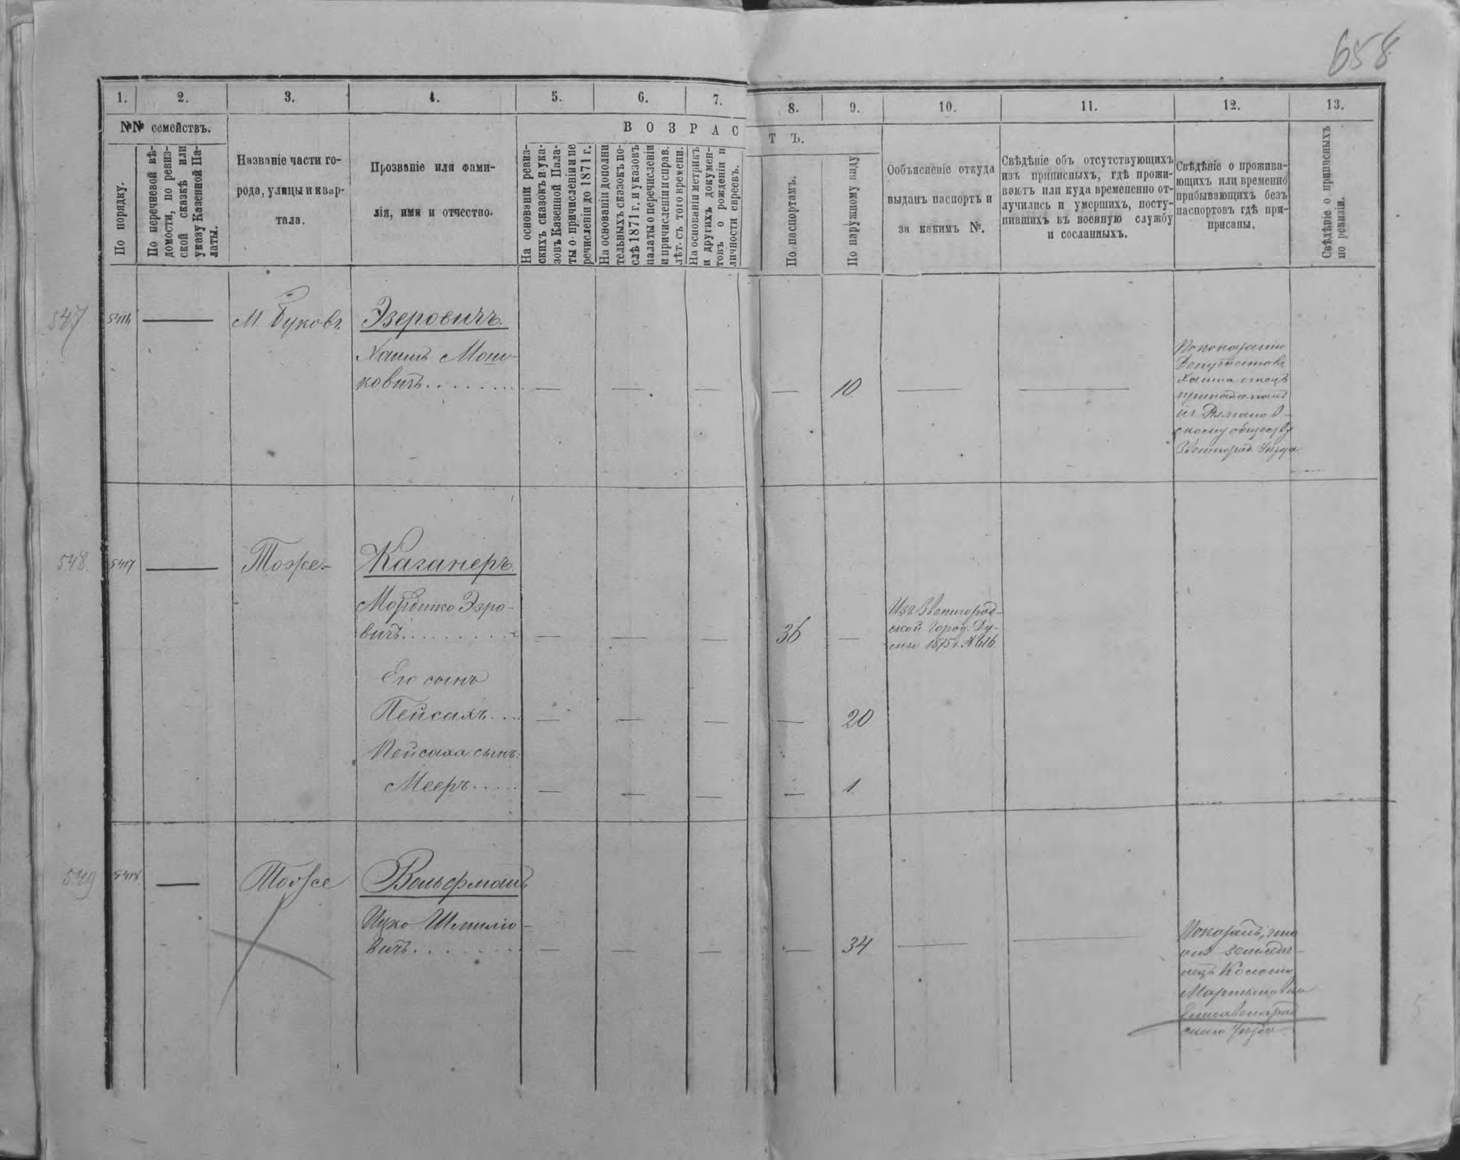 658
1. 2. 3. 4. 5. 6. 7. 8. 9. 10. 11. 12. 13.
№№ семействъ.
По порядку.
По перечневой вѣ-
домости, по ревиз-
ской сказкѣ или
указу Казенной Па-
латы.
Названіе части го-
рода, улицы и квар-
тала.
Прозваніе или фами-
лія, имя и отчество.
ВОЗРАСТЪ.
На основаніи ревиз-
скихъ сказокъ и ука-
зовъ Казенной Пала-
ты о причисленіи и пе
речисленіи до 1871 г.
На основаніи дополни
тельныхъ сказокъ по-
слѣ 1871 г. и указовъ
палаты о перечисленіи
и причисленіи и справ.
лѣт. съ того времени.
На основаніи метрикъ
и другихъ докумен-
товъ о рожденіи и
личности евреевъ.
По паспортамъ.
По наружному виду
Объясненіе откуда
выданъ паспортъ и
за какимъ №.
Свѣдѣніе объ отсутствующихъ
изъ приписныхъ, гдѣ прожи-
ваютъ или куда временно от-
лучились и умершихъ, посту-
пившихъ въ военную службу
и сосланныхъ.
Свѣдѣніе о прожива-
ющихъ или временно
прибывающихъ безъ
паспортовъ гдѣ при-
писаны.
Свѣдѣніе о приписныхъ
по ревизіи.
547 5416 — М. Буковъ Эзеровичъ.
Хаимъ Мош-
ковичъ — — — — 10 — —
По показанію
Депутатовъ
Хаима отецъ
скому обществу
Звенигород. Уѣзда
548 5417 — Тоже Каганеръ
Мордько Эзро-
вичъ — — — 36 —
Изъ Звенигород-
ской Город. Ду-
мы 1875 г. № 616
Его сынъ
Пейсахъ — — — — 20
Пейсаха сынъ
Мееръ — — — — 1
549 5418 — Тоже Вольфманъ
Ицко Шмилио-
вичъ — — — — 34 — —
Показалъ, что
онъ земледѣ-
лецъ Колоніи
Елисаветград
скаго Уѣзда